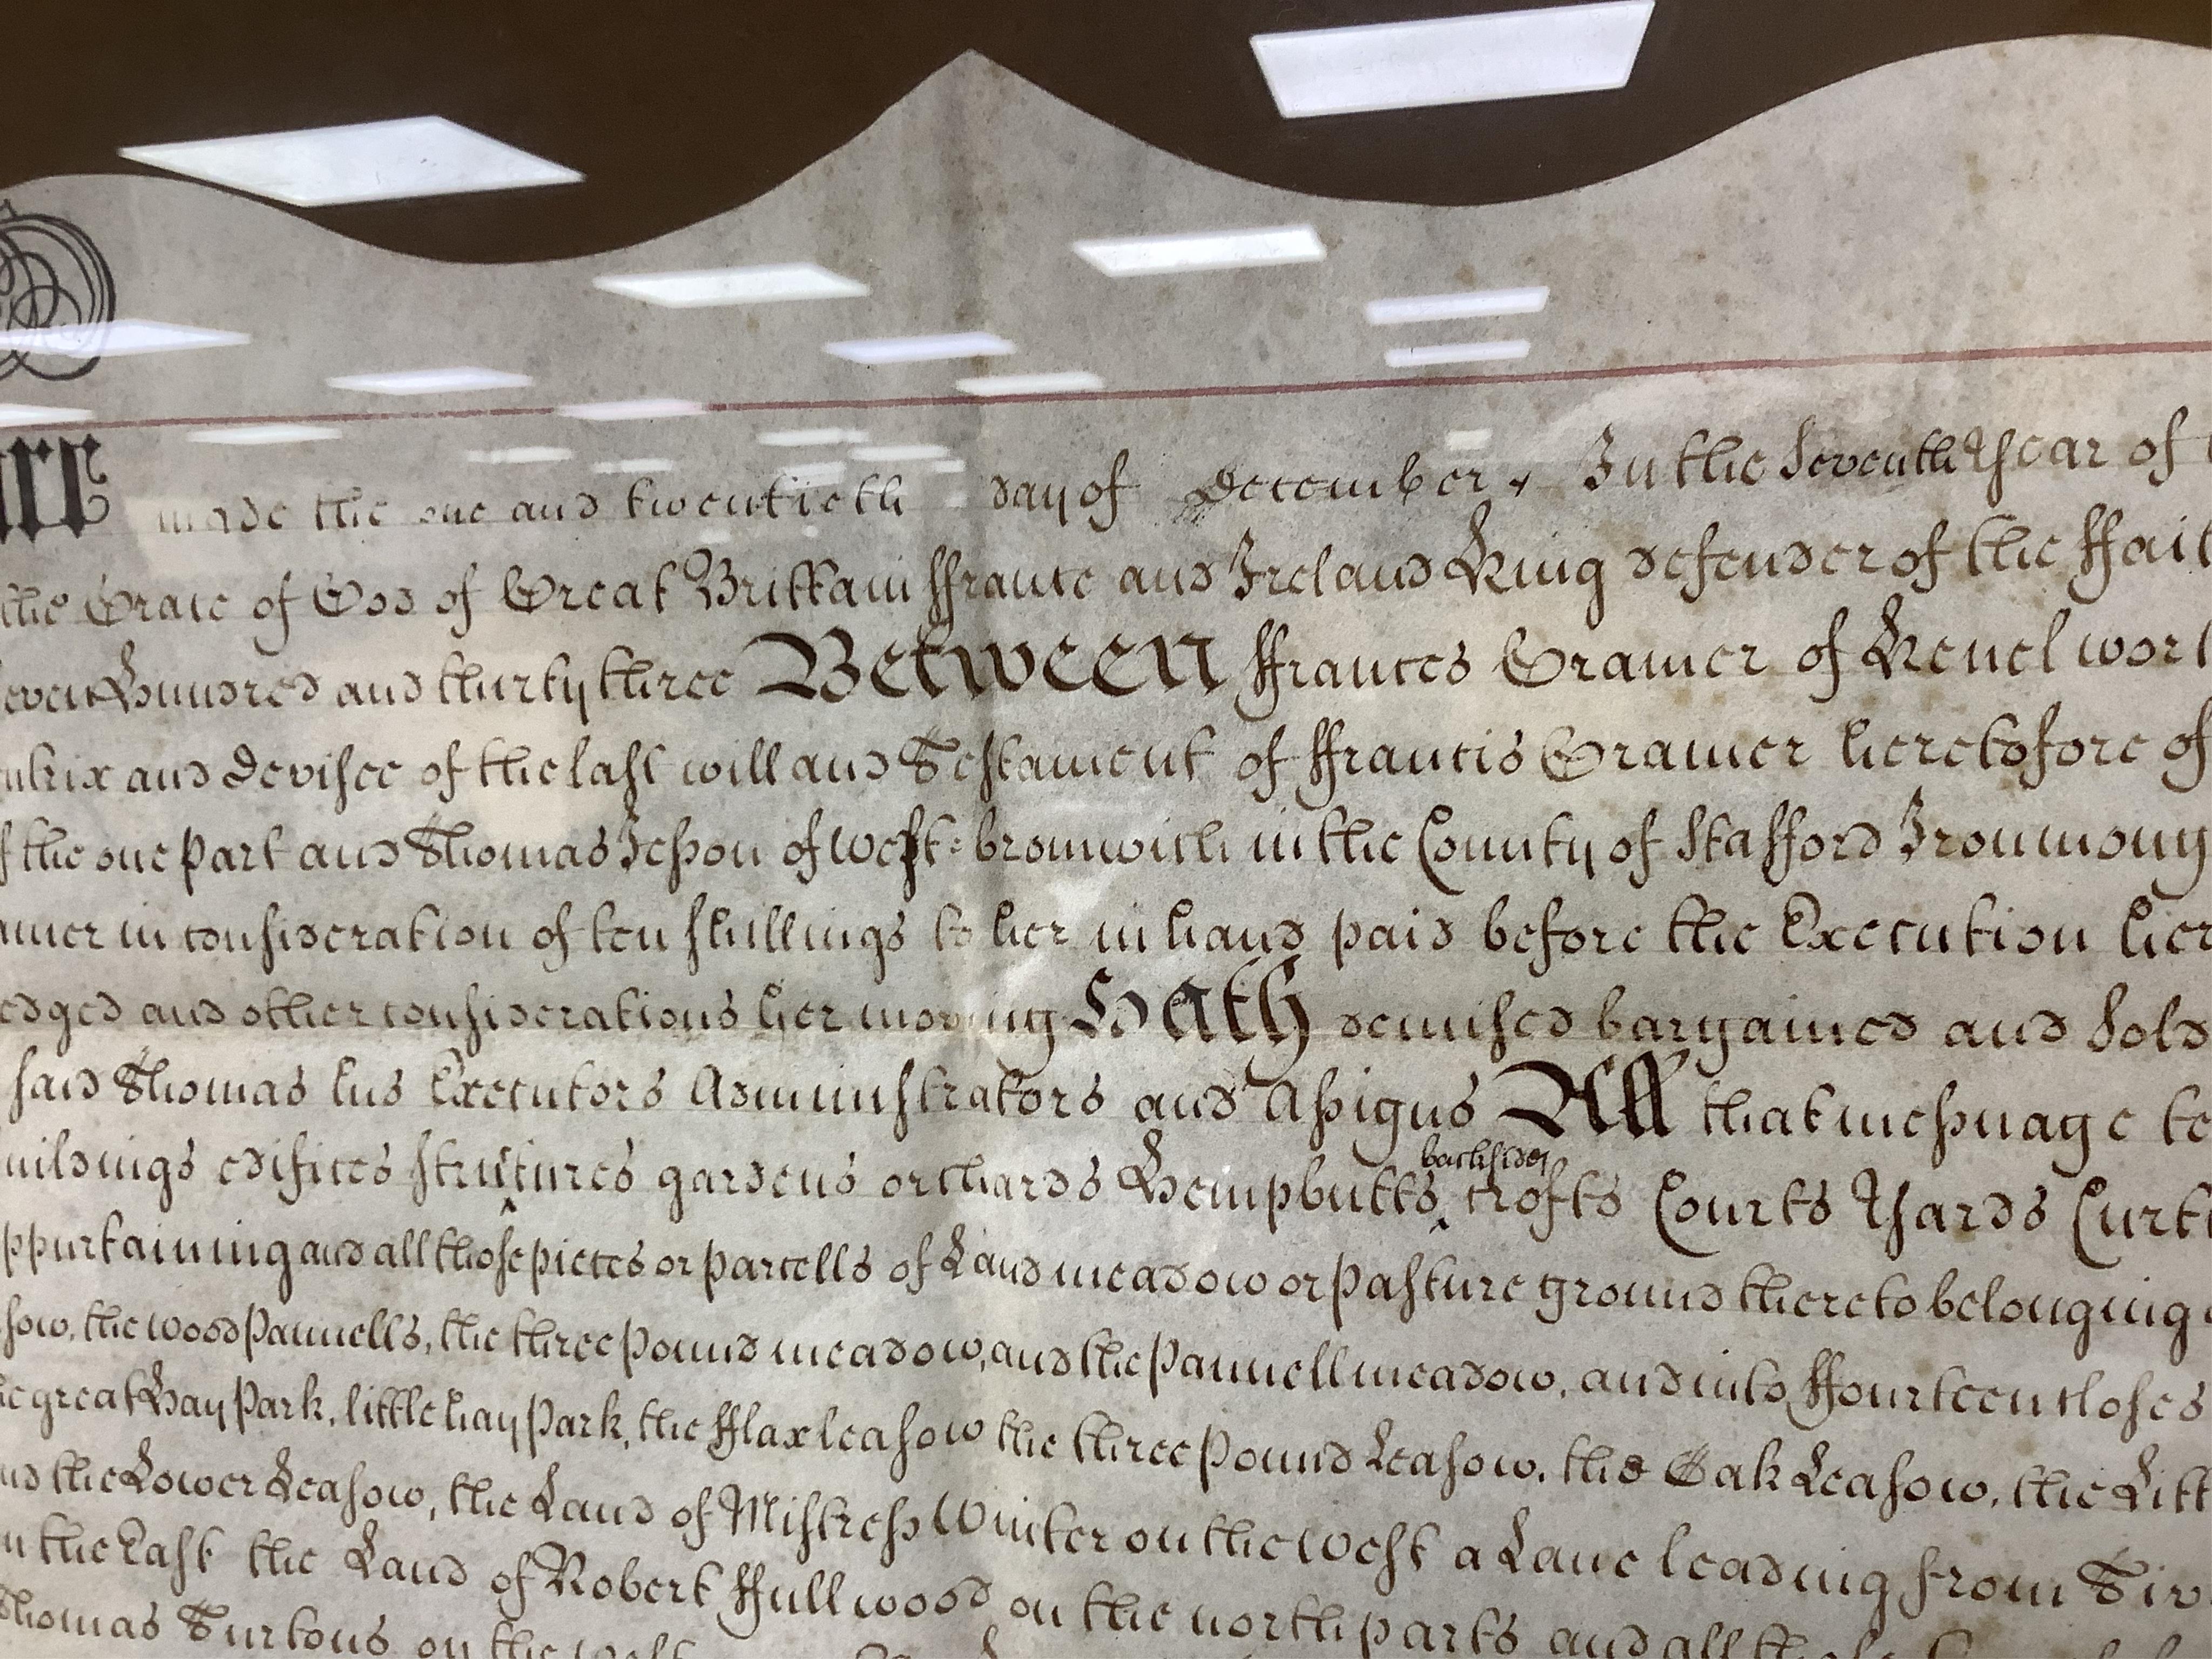 made the one and twentieth day of December, In the Seventh Year of
the Grace of God of Great Brittain ffrance and Ireland King defender of the ffait
even Hundred and thirty three Between ffrances Gramer of Kenelwort
utrix and devisee of the last will and Testament of ffrancis Gramer heretofore of
f the one part and Thomas Jesson of West=bromwich in the County of Stafford Ironmong
amer in consideration of ten shillings to her in hand paid before the Execution her
edged and other considerations her moving Hath demised bargained and Sold
said Thomas his Executors Administrators and Assigns All that messuage te
uildings edifices structures gardens orchards Hempbutts backsides crofts Courts Yards Curti
ppurtaining and all those pieces or parcells of Land meadow or pasture ground thereto belonging
sow, the wood Pannells, the three pound meadow, and the Pannell meadow, and into ffourteen closes
e great Hay Park, little hay Park, the fflax leasow the three Pound Leasow, the Oak Leasow, the Litt
nd the Lower Leasow, the Land of Mistress Winter on the West a Lane leading from Tiv
n the East the Land of Robert ffullwood on the north parts and all
Thomas Turtons on the West